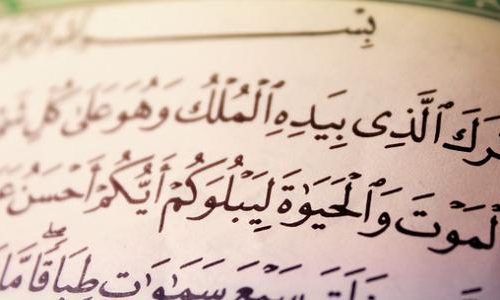 بِسْمِ
رَكَ ٱلَّذِى بِيَدِهِ ٱلْمُلْكُ وَهُوَ عَلَىٰ كُلِّ شَىْ
ٱلْمَوْتَ وَٱلْحَيَوٰةَ لِيَبْلُوَكُمْ أَيُّكُمْ أَحْسَنُ عَ
خَلَقَ سَبْعَ سَمَٰوَٰتٍ طِبَاقًا مَّا